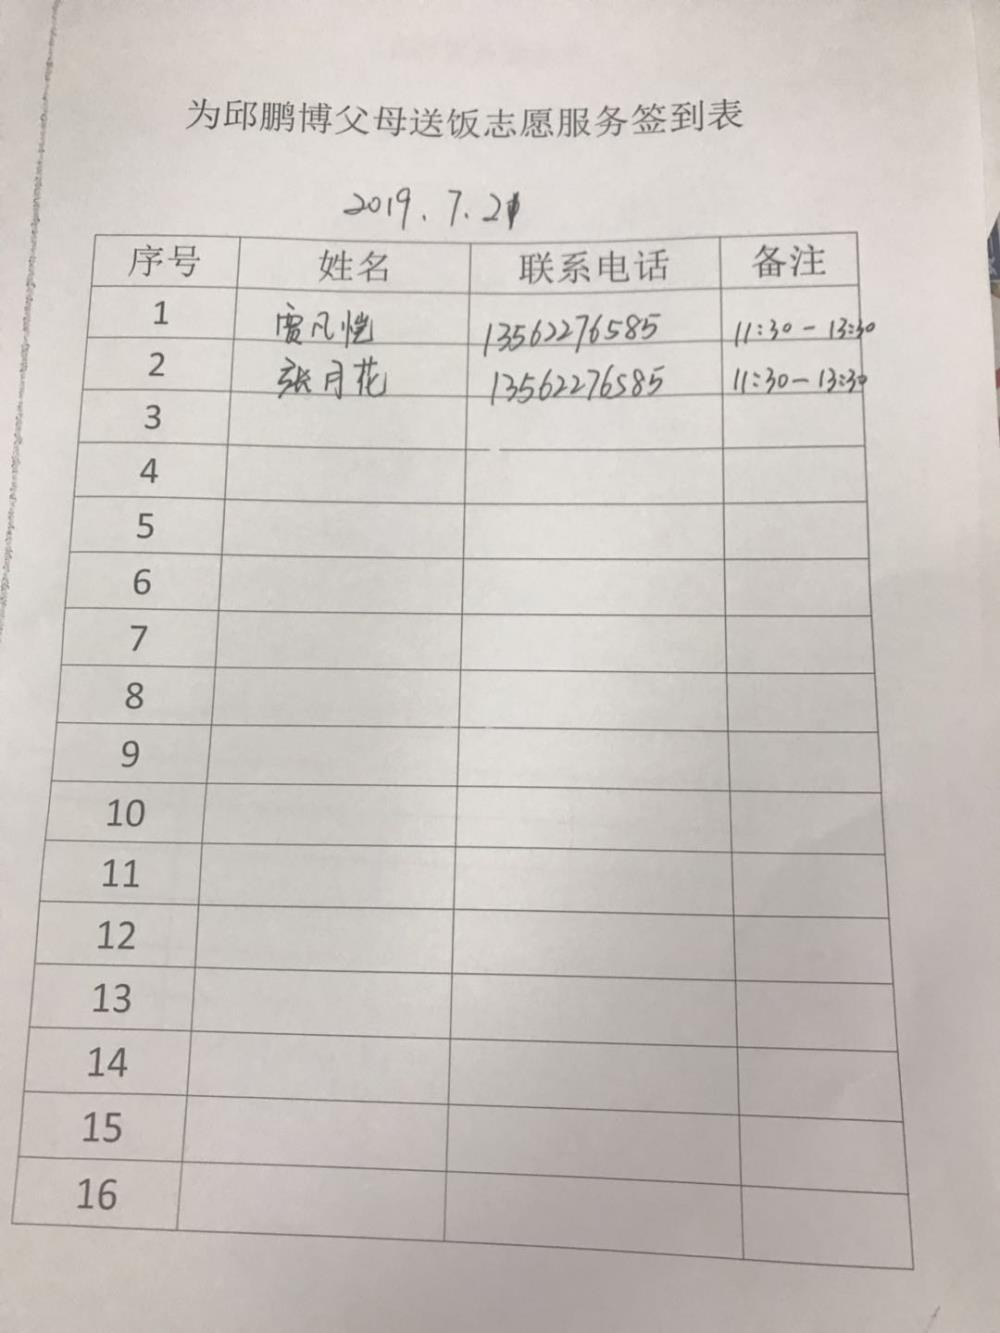 为邱鹏博父母送饭志愿服务签到表
2019.7.21
序号 姓名 联系电话 备注
1 贾凡恺 13562276585 11:30-13:30
2 张月花 13562276585 11:30-13:30
3
4
5
6
7
8
9
10
11
12
13
14
15
16